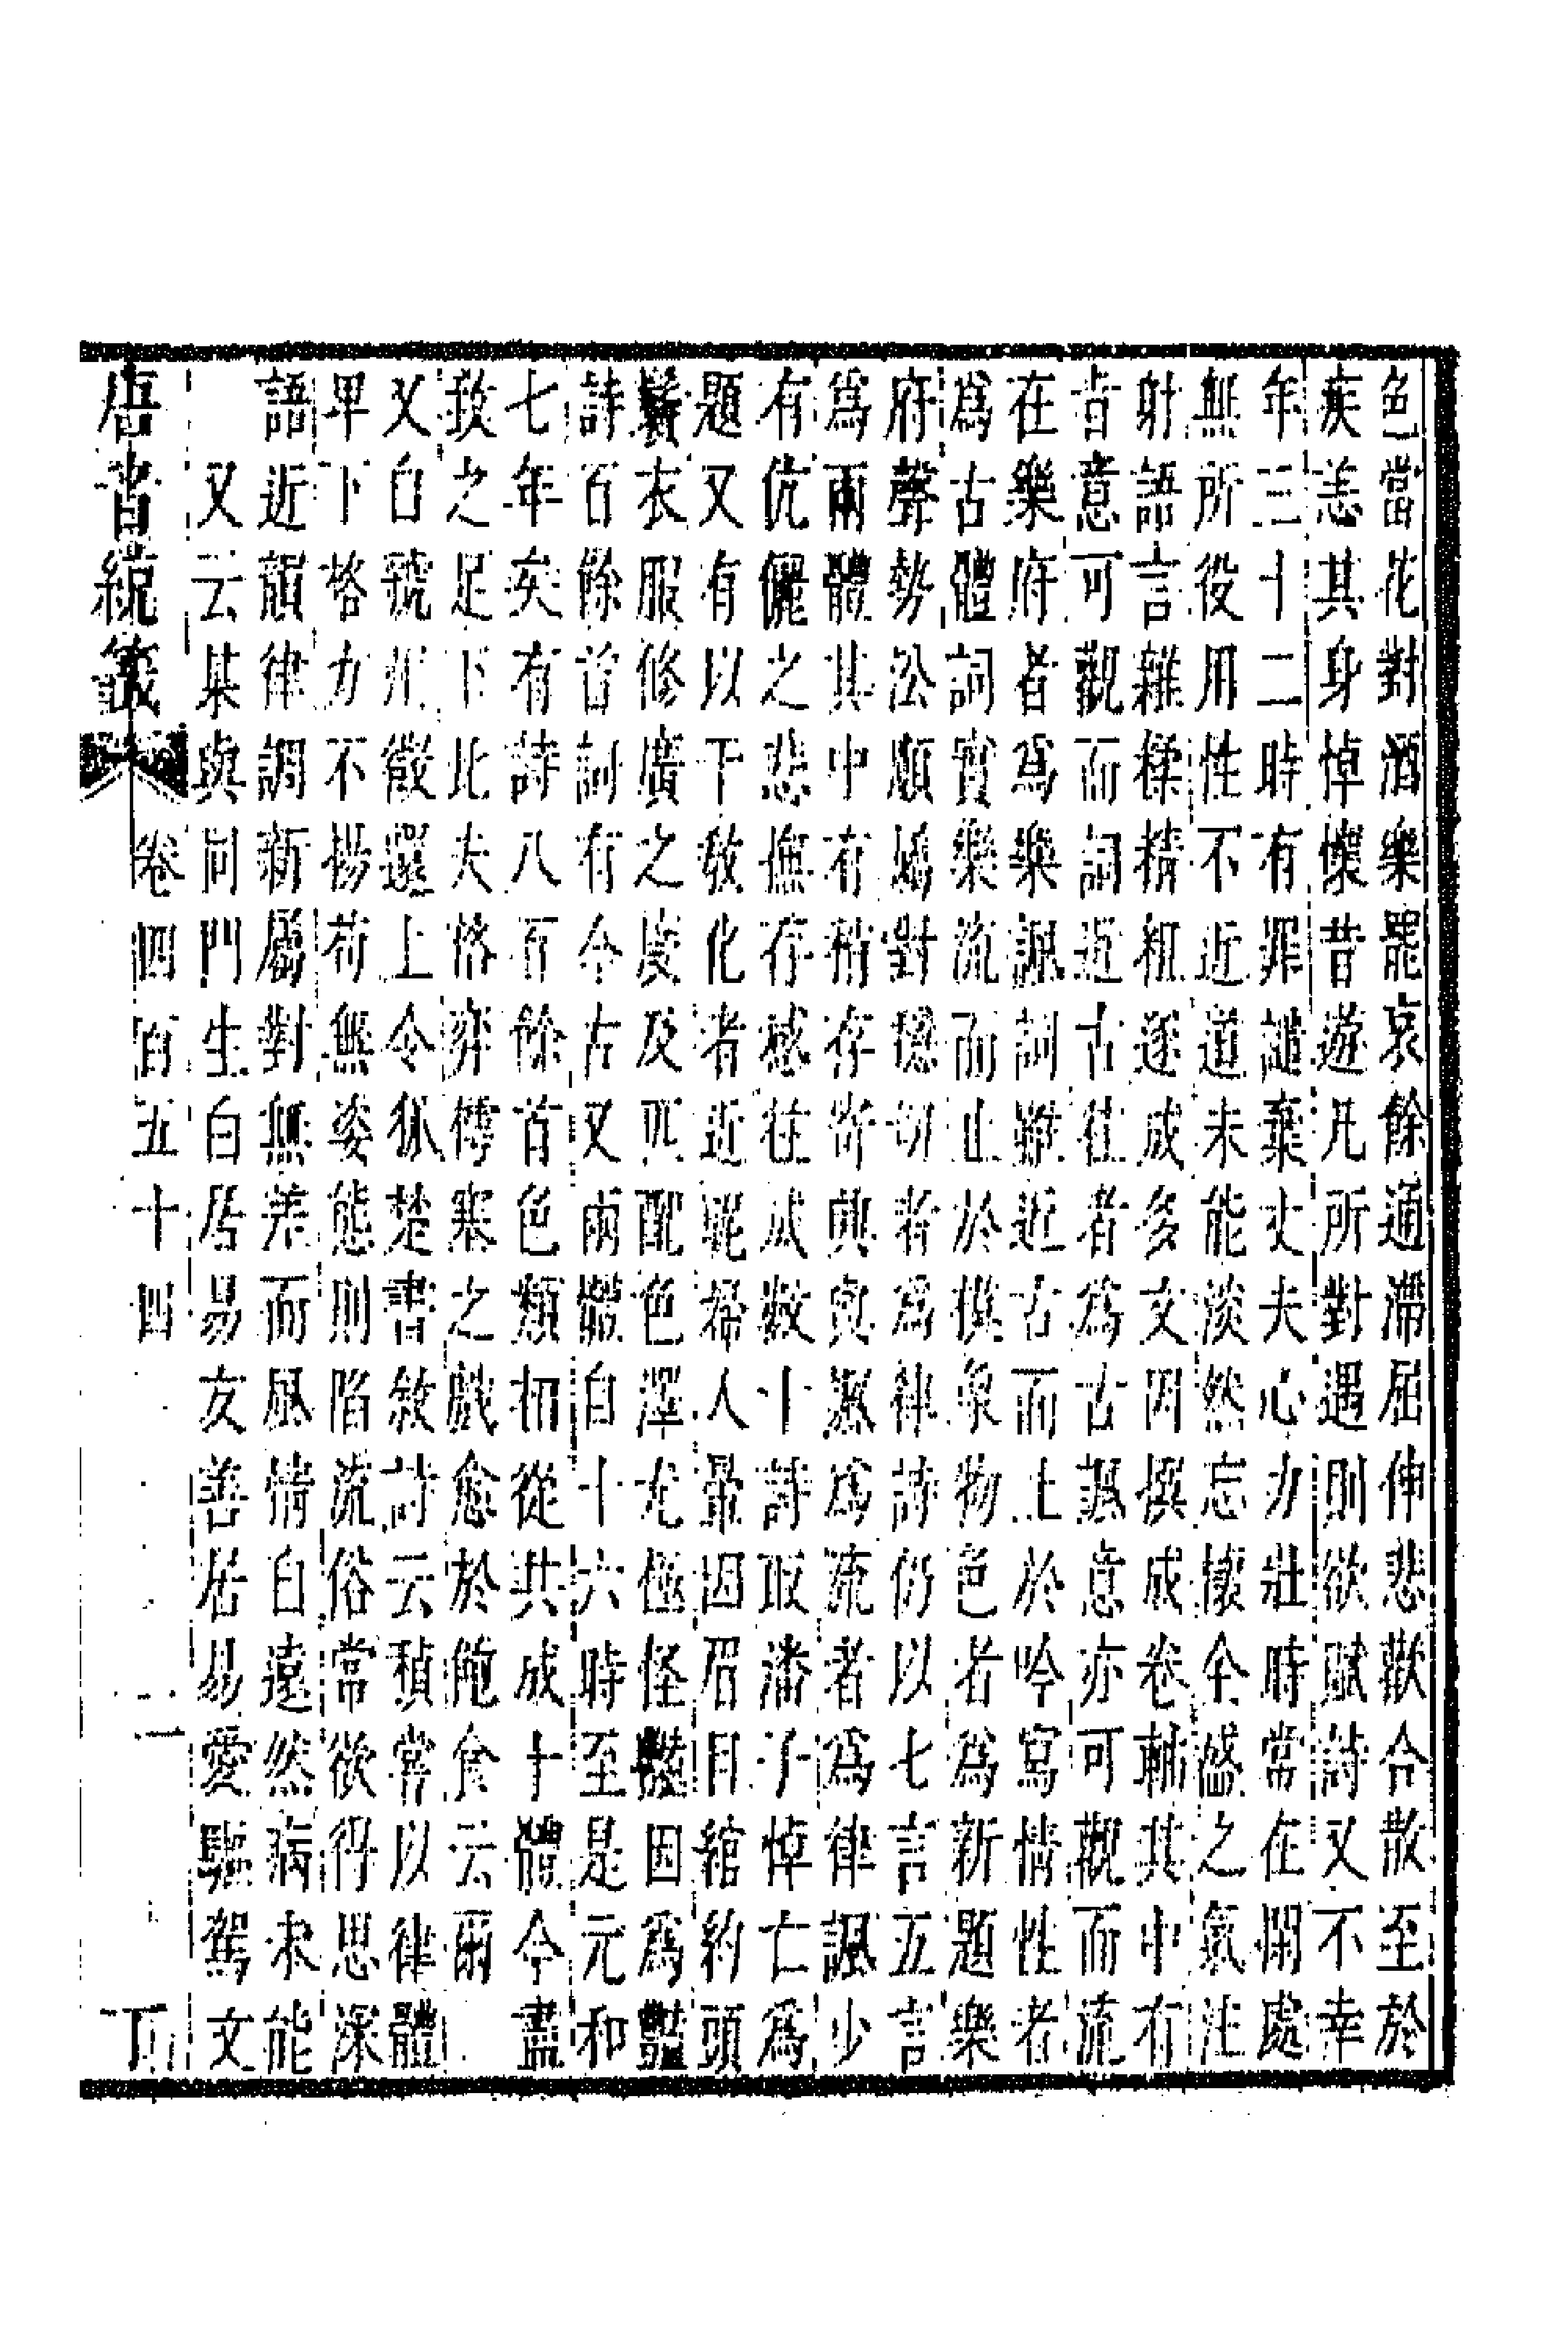 色當花對酒樂罷哀餘通滯屈伸悲歡合散至於
疾恙其身悼懷昔遊凡所對遇則欲賦詩又不幸
年三十二時有罪譴棄丈夫心力壯時常在閒處
無所役用性不近道未能淡然忘懷全盛之氣注
射語言雜糅精粗遂成多文因撰成卷輔其中有
旨意可觀而詞近古往者為古諷意亦可觀而流
在樂府者為樂諷詞雖近古而止於吟寫情性者
為古體詞實樂流而止於模象物色者為新題樂
府聲勢沿順屬對穩切者為律詩仍以七言五言
為兩體其中有稍存寄興與諷為流者為律諷少
有伉儷之悲撫存感往成數十詩取潘子悼亡為
題又有以干教化者近昵婦人暈因眉目綰約頭
鬢衣服修廣之度及匹配色澤尤極怪豔因為豔
詩百餘首詞有今古又兩體自十六時至是元和
七年矣有詩八百餘首色類相從共成十體今盡
致之足下此夫格弈樗塞之戲愈於飽食云爾
又白虢州徵還上令狐楚書敘詩云稹常以律體
卑下格力不揚苟無姿態則陷流俗常欲得思深
語近韻律調新屬對無差而風情自遠然病未能
又云某與同門生白居易友善居易愛驅駕文
唐書統籤 卷四百五十四 二